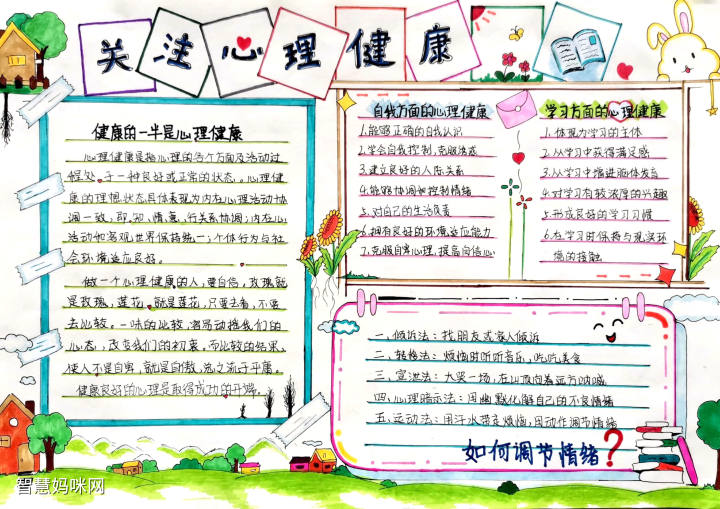 关注心理健康
健康的一半是心理健康
心理健康是指心理的各个方面及活动过
程处于一种良好或正常的状态。心理健
康的理想状态具体表现为内在心理活动协
调一致,即,知、情、意、行关系协调;内在心
活动和客观世界保持统一;个体行为与社
会环境适应良好。
做一个心理健康的人,要自信,玫瑰就
是玫瑰,莲花就是莲花,只要去看,不要
去比较。一味的比较,容易动摇我们的
心态,改变我们的初衷。而比较的结果,
使人不是自卑,就是自傲,流之流于平庸。
健康良好的心理是取得成功的开端。
自我方面的心理健康
1.能够正确的自我认识
2.学会自我控制,克服诱惑
3.建立良好的人际关系
4.能够协调和控制情绪
5.对自己的生活负责
6.拥有良好的环境适应能力
7.克服自卑心理,提高自信心
学习方面的心理健康
1.体现为学习的主体
2.从学习中获得满足感
3.从学习中增进脑体发育
4.对学习有较浓厚的兴趣
5.形成良好的学习习惯
6.在学习时保持与现实环
境的接触
一、倾诉法:找朋友或家人倾诉
二、转移法:烦恼时听听音乐,吃吃美食
三、宣泄法:大哭一场,在山顶向着远方呐喊
四、心理暗示法:用幽默化解自己的不良情绪
五、运动法:用汗水带走烦恼,用动作调节情绪
如何调节情绪?
智慧妈咪网